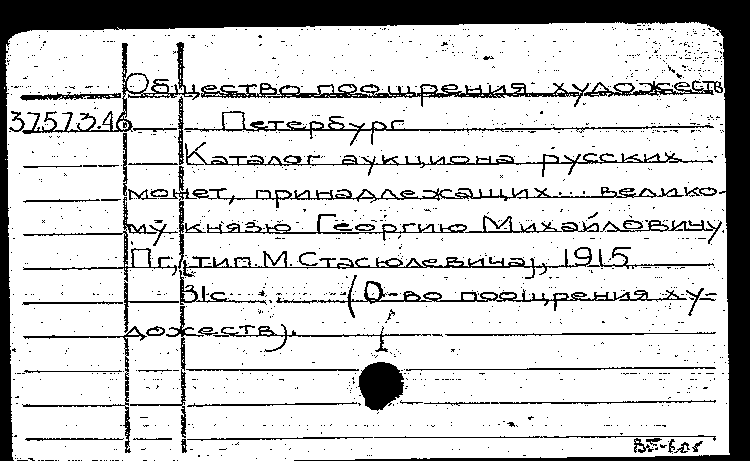 Общество поощрения художеств
37573.46 Петербург
Каталог аукциона русских
монет, принадлежащих... велико-
му князю Георгию Михайловичу
Пг, [тип. М. Стасюлевича], 1915
31с (О-во поощрения ху-
дожеств).